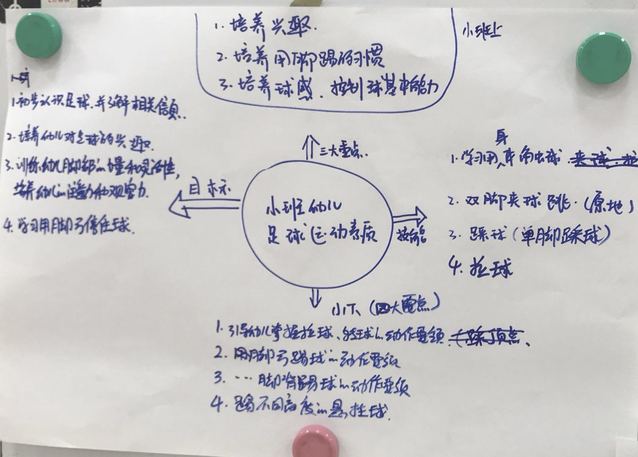 1. 培养兴趣.
2. 培养用脚踢的习惯
3. 培养球感、控制球基本能力
小班上
三大重点.
1.初步认识足球,并了解相关信息.
2.培养幼儿对足球的兴趣.
3.训练幼儿脚部的力量和灵活性,
培养幼儿的注意力和观察力.
4.学习用脚弓停住球.
目标
小班幼儿
足球运动素质
技能
2. 双脚夹球跳.(原地)
3. 踩球(单脚踩球)
4. 拉球
小下.(四大重点)
1. 引导幼儿掌握拉球、
动作要领
2. 用脚弓踢球的动作要领
3. …脚背踢球的动作要领
4. 踢不同高度的悬挂球.